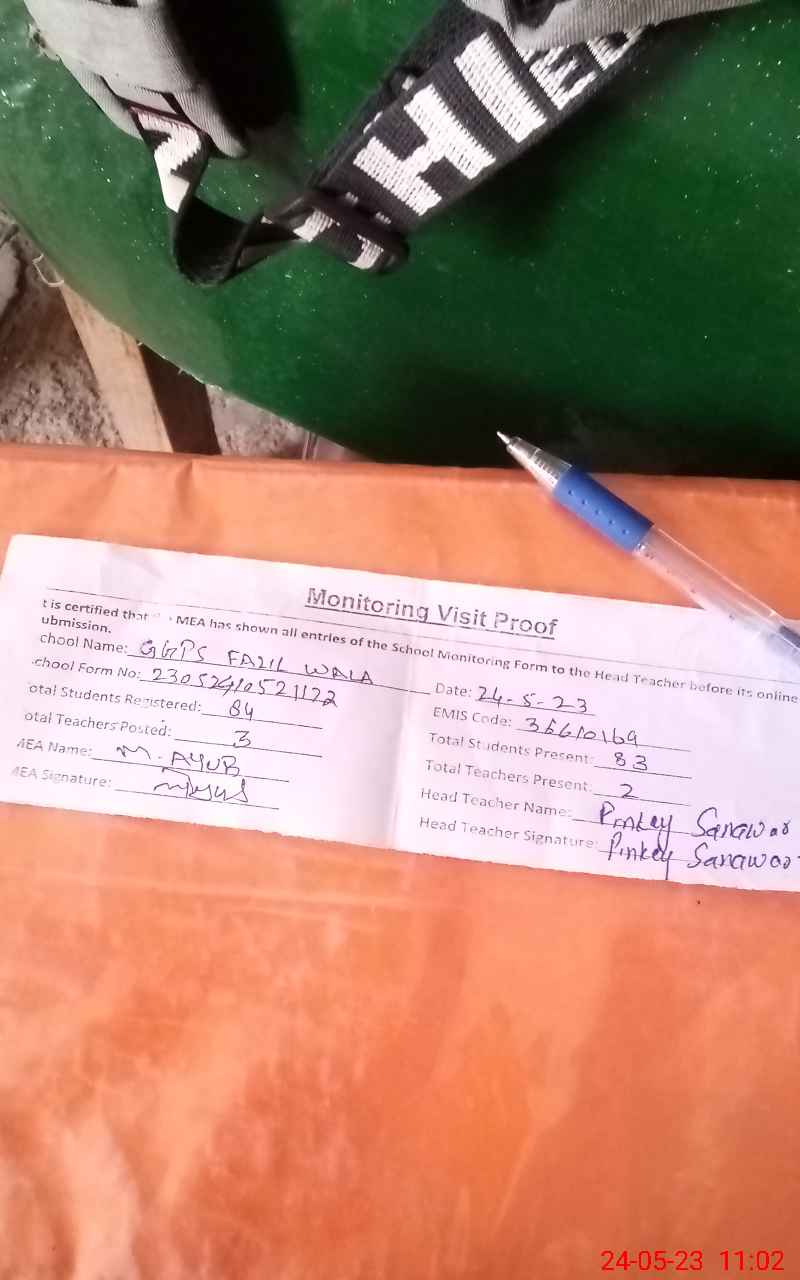 HIE
Monitoring Visit Proof
t is certified that MEA has shown all entries of the School Monitoring Form to the Head Teacher before its online
ubmission.
chool Name: GGPS FAZIL WALA
Date: 24-5-23
chool Form No: 23052410521122
EMIS Code: 36610169
otal Students Registered: 84
Total Students Present: 83
otal Teachers Posted: 3
Total Teachers Present: 2
MEA Name: M. AYUB
Head Teacher Name: Pinkey Sanawar
MEA Signature:
Head Teacher Signature: Pinkey Sanawar
24-05-23 11:02